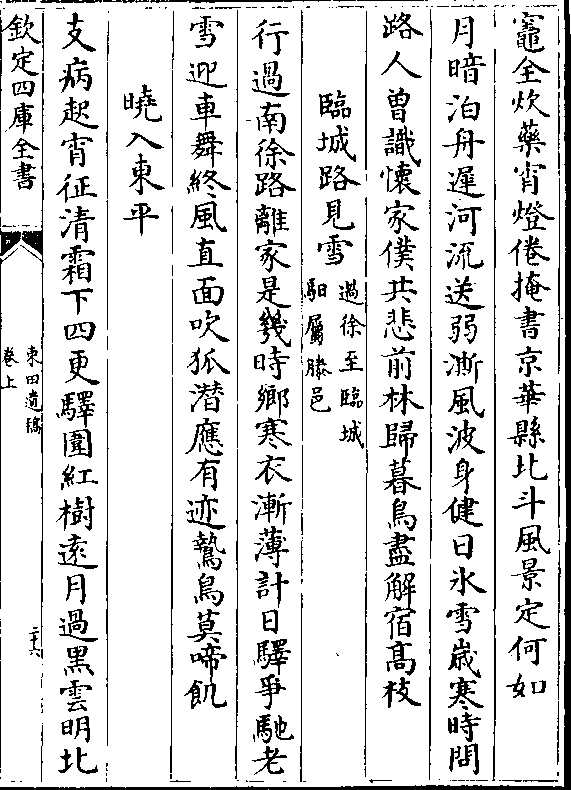 竈全炊藥宵燈倦掩書京華縣北斗風景定何如
月暗泊舟遲河流送弱澌風波身健日氷雪嵗寒時問
路人曽識懐家僕共悲前林歸暮鳥盡解宿髙枝
臨城路見雪過徐至臨城馹屬滕邑
行過南徐路離家是幾時鄉寒衣漸薄計日驛爭馳老
雪迎車舞終風直面吹狐潜應有迹鷙鳥莫啼飢
曉入東平
支病起宵征清霜下四更驛圍紅樹逺月過黒雲明北
欽定四庫全書
東田遺稿
卷上
二十六